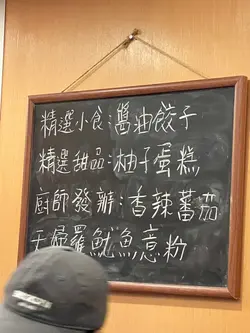 精選小食:醬油餃子
精選甜品:柚子蛋糕
廚師發辦:香辣蕃茄
干掃羅魷魚意粉